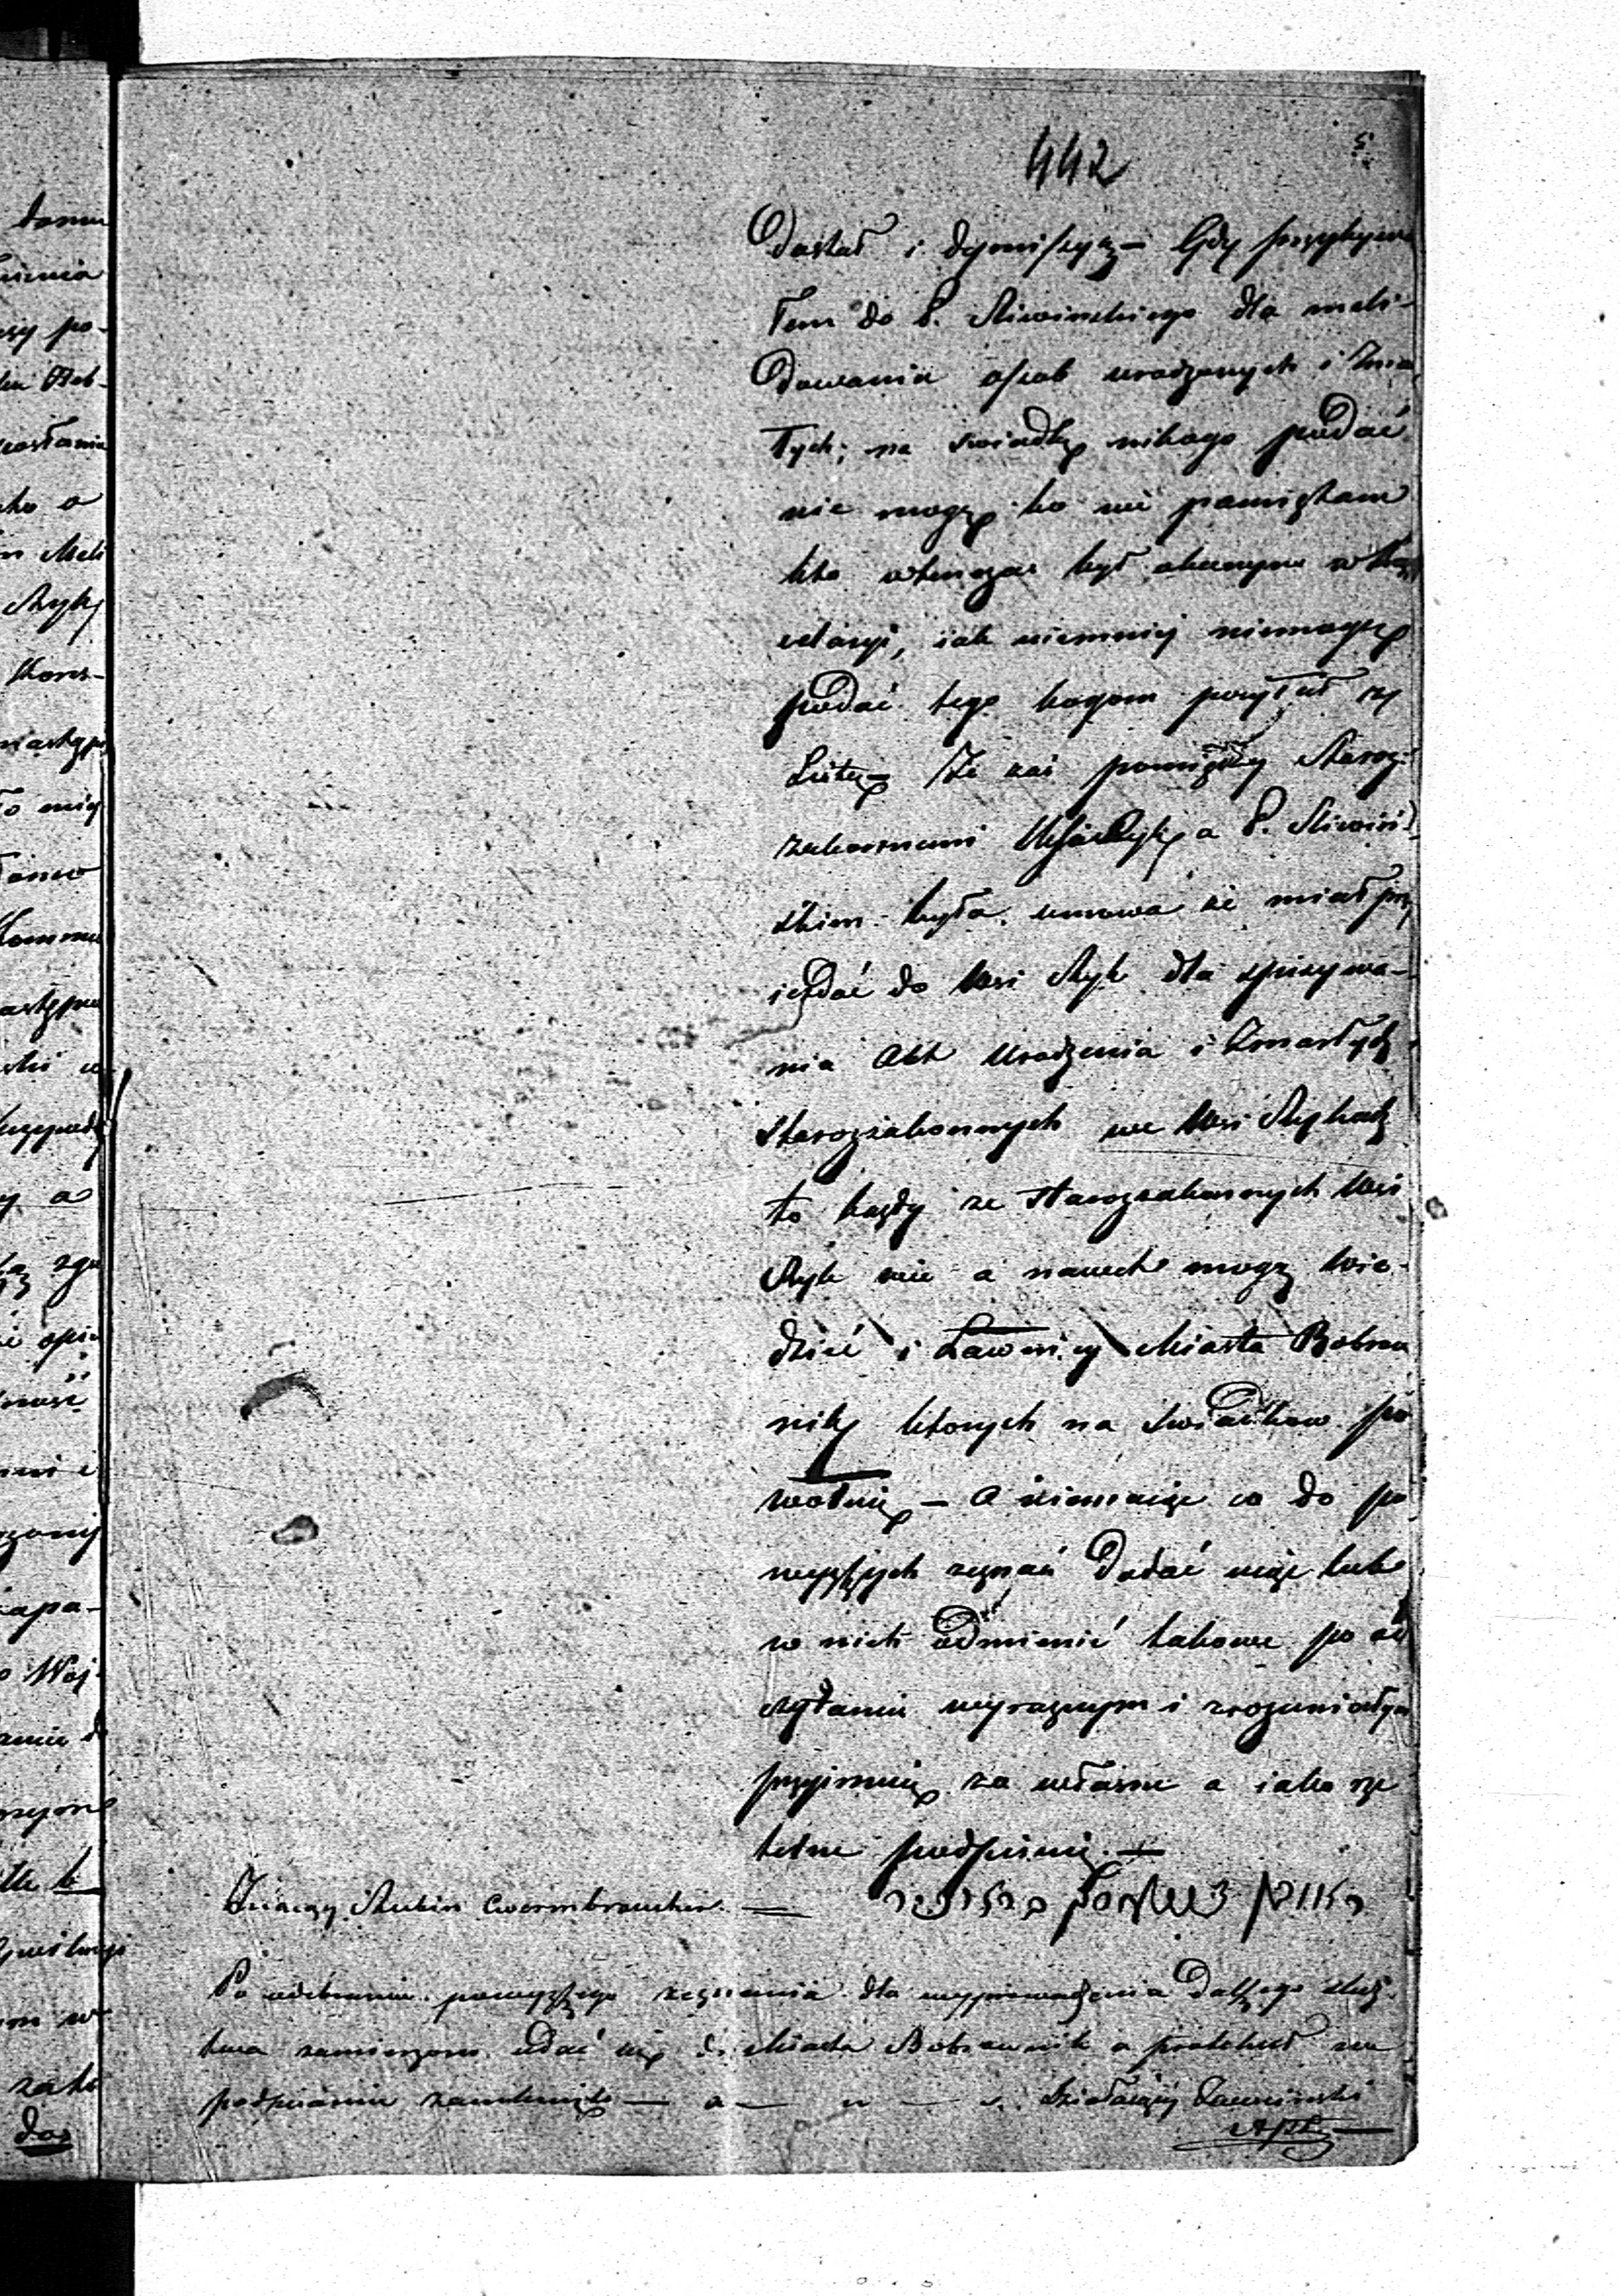 442
dostał i dymissyą — Gdy przybywa
łem do P. Sliwinskiego dla meli-
dowania osob urodzonych i Zmar
łych; na swiadkę nikogo podać
nie mogę bo nie pamiętam
kto wtenczas był obecnym w kan
celaryi, iak niemniej niemogę
podać tego kogom posyłał z
Listę — Że zaś pomiędzy Staroz-
zakonnemi a P. Sliwiń
skim była umowa że miał przy
ieżdać do Wsi Ryk dla spisywa-
nia Akt Urodzenia i Zmarłych
starozzakonnych we Wsi Rykach
to każdy ze starozzakonnych Wsi
Ryk wie a nawet mogą wie-
dzieć i Ławnicy Miasta Bobrow
nik ktorych na swiadkow po
wołuię — A niemaiąc co do po
wyższych zeznań dodać więc lub
w nich odmienić takowe po od
czytaniu wyraznym i zrozumiałym
przyimuię za własne a iako rze
telne podpisuię. —
Zeznaiący Rubin Cwermbraucher —
Po odebraniu powyższego zeznania dla wyprowadzenia dalszego sledz-
twa zamierzono udać się do Miasta Bobrownik a protokuł na
podpisaniu zamknięto — Działaiący